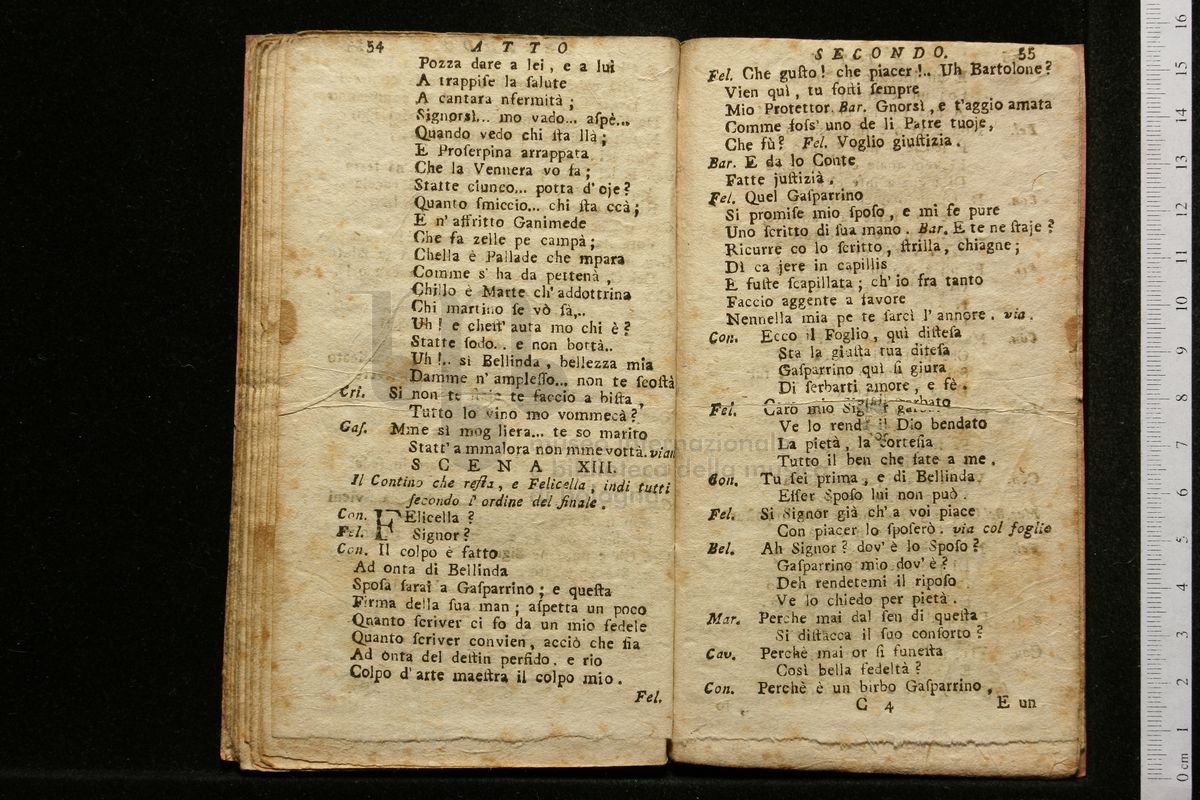 54 ATTO
Pozza dare a lei, e a lui
A trappiſe la ſalute
A cantara nfermità;
Signorsì... mo vado... aſpè...
Quando vedo chi ſta llà;
E Proſerpina arrappata
Che la Vennera vo fa;
Statte ciunco... potta d'oje?
Quanto ſmiccio... chi ſta ccà;
E n'affritto Ganimede
Che fa zelle pe campà;
Chella è Pallade che mpara
Comme s'ha da pettenà,
Chillo è Marte ch'addottrina
Chi martino ſe vò fà...
Uh! e cheſt'auta mo chi è?
Statte ſodo.. e non bottà..
Uh!.. si Bellinda, bellezza mia
Damme n'ampleſſo... non te ſcoſtà
Cri. Si non te te faccio a biſta,
Tutto lo vino mo vommecà?
Gaſ. Mme sì mog liera... te so marito
Statt'a mmalora non mme vottà. vian
SCENA XIII.
Il Contino che reſta, e Felicella, indi tutti
ſecondo l'ordine del finale.
Con. FElicella?
Fel. Signor?
Con. Il colpo è fatto
Ad onta di Bellinda
Spoſa ſarai a Gaſparrino; e queſta
Firma della ſua man; aſpetta un poco
Quanto ſcriver ci fo da un mio fedele
Quanto ſcriver convien, acciò che ſia
Ad onta del deſtin perfido. e rio
Colpo d'arte maeſtra il colpo mio.
Fel.
SECONDO. 55
Fel. Che guſto! che piacer!.. Uh Bartolone?
Vien quì, tu foſti ſempre
Mio Protettor. Bar. Gnorsì, e t'aggio amata
Comme foſs' uno de li Patre tuoje,
Che fù? Fel. Voglio giuſtizia.
Bar. E da lo Conte
Fatte juſtizia.
Fel. Quel Gaſparrino
Si promiſe mio ſpoſo, e mi fe pure
Uno ſcritto di ſua mano. Bar. E te ne ſtaje?
Ricurre co lo ſcritto, ſtrilla, chiagne;
Dì ca jere in capillis
E fuſte ſcapillata; ch'io fra tanto
Faccio aggente a favore
Nennella mia pe te farci l'annore. via.
Con. Ecco il Foglio, quì diſteſa
Sta la giuſta tua difeſa
Gaſparrino quì ſi giura
Di ſerbarti amore, e fè.
Fel. Caro mio Signor garbato
Ve lo renda il Dio bendato
La pietà, la corteſia
Tutto il ben che fate a me.
Con. Tu ſei prima, e di Bellinda
Eſſer Spoſo lui non può.
Fel. Si Signor già ch'a voi piace
Con piacer lo ſpoſerò. via col foglio
Bel. Ah Signor? dov'è lo Spoſo?
Gaſparrino mio dov'è?
Deh rendetemi il ripoſo
Ve lo chiedo per pietà.
Mar. Perche mai dal ſen di queſta
Si diſtacca il ſuo conforto?
Cav. Perchè mai or ſi funeſta
Così bella fedeltà?
Con. Perchè è un birbo Gaſparrino,
C 4 E un